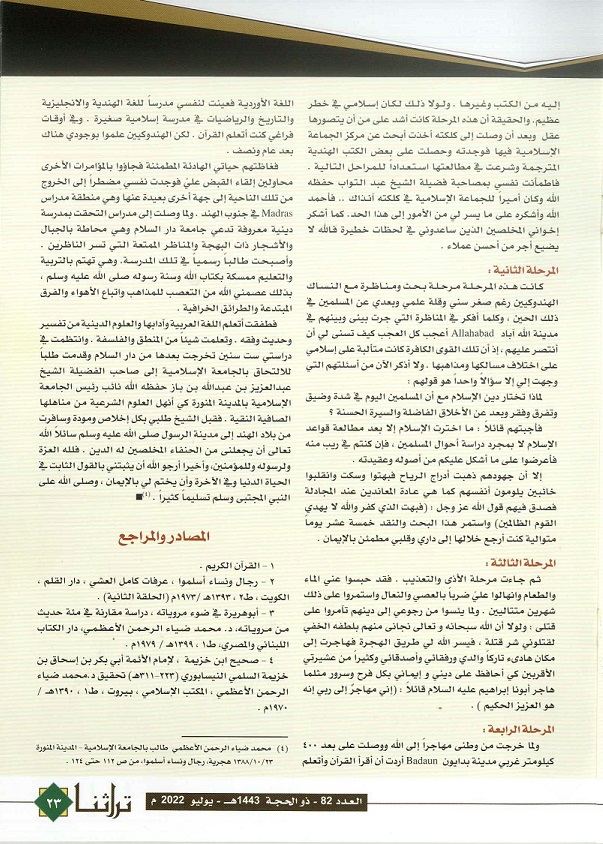 إليه من الكتب وغيرها . ولولا ذلك لكان إسلامي في خطر
عظيم. والحقيقة أن هذه المرحلة كانت أشد على من أن يتصورها
عقل وبعد أن وصلت إلى كلكته أخذت أبحث عن مركز الجماعة
الإسلامية فيها فوجدته وحصلت على بعض الكتب الهندية
المترجمة وشرعت في مطالعتها استعداداً للمراحل التالية .
فاطمأنت نفسي بمصاحبة فضيلة الشيخ عبد التواب حفظه
الله وكان أميراً للجماعة الإسلامية في كلكته آنذاك .. فأحمد
الله وأشكره على ما يسر لي من الأمور إلى هذا الحد. كما أشكر
إخواني المخلصين الذين ساعدوني في لحظات خطيرة فالله لا
يضيع أجر من أحسن عملاء .
المرحلة الثانية :
كانت هذه المرحلة مرحلة بحث ومناظرة مع النساك
الهندوكيين رغم صغر سني وقلة علمي وبعدي عن المسلمين في
ذلك الحين ، وكلما أفكر في المناظرة التي جرت بيني وبينهم في
مدينة الله آباد Allahabad أعجب كل العجب كيف تسنى لي أن
أنتصر عليهم ، إذ أن تلك القوى الكافرة كانت متألبة على إسلامي
على اختلاف مسالكها ومذاهبها . ولا أذكر الآن من أسئلتهم التي
وجهت إلي إلا سؤالاً واحداً هو قولهم :
لماذا تختار دين الإسلام مع أن المسلمين اليوم في شدة وضيق
وتفرق وفقر وبعد عن الأخلاق الفاضلة والسيرة الحسنة ؟
فأجبتهم قائلاً : ما اخترت الإسلام إلا بعد مطالعة قواعد
الإسلام لا بمجرد دراسة أحوال المسلمين ، فإن كنتم في ريب منه
فأعرضوا على ما أشكل عليكم من أصوله وعقيدته .
إلا أن جهودهم ذهبت أدراج الرياح فبهتوا وسكت وانقلبوا
خائبين يلومون أنفسهم كما هي عادة المعاندين عند المجادلة
فصدق فيهم قول الله عز وجل : (فبهت الذي كفر والله لا يهدي
القوم الظالمين) واستمر هذا البحث والنقد خمسة عشر يوماً
متوالية كنت أرجع خلالها إلى داري وقلبي مطمئن بالإيمان .
المرحلة الثالثة :
ثم جاءت مرحلة الأذى والتعذيب . فقد حبسوا عني الماء
والطعام وانهالوا عليّ ضرباً بالعصي والنعال واستمروا على ذلك
شهرين متتاليين . ولما يئسوا من رجوعي إلى دينهم تآمروا على
قتلى : ولولا أن الله سبحانه و تعالى نجانى منهم بلطفه الخفي
لقتلوني شر قتلة ، فيسر الله لي طريق الهجرة فهاجرت إلى
مكان هادىء تاركاً والدي ورفقائي وأصدقائي وكثيرا من عشيرتي
الأقربين كي أحافظ على ديني و إيماني بكل فرح وسرور مثلما
هاجر أبونا إبراهيم عليه السلام قائلاً : (إني مهاجرٌ إلى ربي إنه
هو العزيز الحكيم ) .
المرحلة الرابعة :
ولما خرجت من وطنى مهاجراً إلى الله ووصلت على بعد ٤٠٠
كيلومتر غربي مدينة بدايون Badaun أردت أن أقرأ القرآن وأتعلم
اللغة الأوردية فعينت لنفسي مدرساً للغة الهندية والانجليزية
والتاريخ والرياضيات في مدرسة إسلامية صغيرة . وفي أوقات
فراغي كنت أتعلم القرآن . لكن الهندوكيين علموا بوجودي هناك
بعد عام ونصف .
فغاظتهم حياتي الهادئة المطمئنة فجاؤوا بالمؤامرات الأخرى
محاولين إلقاء القبض عليّ فوجدت نفسي مضطراً إلى الخروج
من تلك الناحية إلى جهة أخرى بعيدة عنها وهي منطقة مدراس
Madras في جنوب الهند . ولما وصلت إلى مدراس التحقت بمدرسة
دينية معروفة تدعي جامعة دار السلام وهي محاطة بالجبال
والأشجار ذات البهجة والمناظر الممتعة التي تسر الناظرين .
وأصبحت طالباً رسمياً في تلك المدرسة. وهي تهتم بالتربية
والتعليم ممسكة بكتاب الله وسنة رسوله صلى الله عليه وسلم ،
بذلك عصمني الله من التعصب للمذاهب واتباع الأهواء والفرق
المبتدعة والطرائق الخرافية .
فطفقت أتعلم اللغة العربية وآدابها والعلوم الدينية من تفسير
وحديث وفقه . وتعلمت شيئاً من المنطق والفلسفة . وانتظمت في
دراستي ست سنين تخرجت بعدها من دار السلام وقدمت طلباً
للالتحاق بالجامعة الإسلامية إلى صاحب الفضيلة الشيخ
عبدالعزيز بن عبدالله بن باز حفظه الله نائب رئيس الجامعة
الإسلامية بالمدينة المنورة كي أنهل العلوم الشرعية من مناهلها
الصافية النقية . فقبل الشيخ طلبي بكل إخلاص ومودة وسافرت
من بلاد الهند إلى مدينة الرسول صلى الله عليه وسلم سائلاً الله
تعالى أن يجعلني من الحنفاء المخلصين له الدين . فلله العزة
ولرسوله وللمؤمنين، وأخيرا أرجو الله أن يثبتني بالقول الثابت في
الحياة الدنيا وفي الآخرة وأن يختم لي بالإيمان ، وصلى الله على
النبي المجتبى وسلم تسليماً كثيراً . (٤) ■
المصادر والمراجع
١ - القرآن الكريم .
٢ - رجال ونساء أسلموا ، عرفات كامل العشي ، دار القلم ،
الكويت ، ط٢ ، ١٣٩٣هـ /١٩٧٣م (الحلقة الثانية) .
٣ - أبوهريرة في ضوء مروياته ، دراسة مقارنة في مئة حديث
من مروياته، د. محمد ضياء الرحمن الأعظمي، دار الكتاب
اللبناني والمصري، ط١ ، ١٣٩٩هـ / ١٩٧٩م .
٤ - صحيح ابن خزيمة ، لإمام الأئمة أبي بكر بن إسحاق بن
خزيمة السلمي النيسابوري (٢٢٣-٣١١هـ) تحقيق د.محمد ضياء
الرحمن الأعظمي ، المكتب الإسلامي ، بيروت ، ط١ ، ١٣٩٠هـ /
١٩٧٠م .
(٤) محمد ضياء الرحمن الأعظمي طالب بالجامعة الإسلامية - المدينة المنورة
١٣٨٨/١٠/٢٣ هجرية، رجال ونساء أسلموا، من ص ١١٢ حتى ١٢٤ .
العدد 82 - ذو الحجة 1443هـ - يوليو 2022 م
تراثنا
٢٣